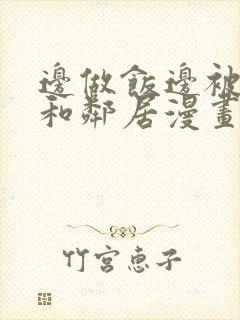 邊做飯邊被
和鄰居漫畫
竹宮惠子